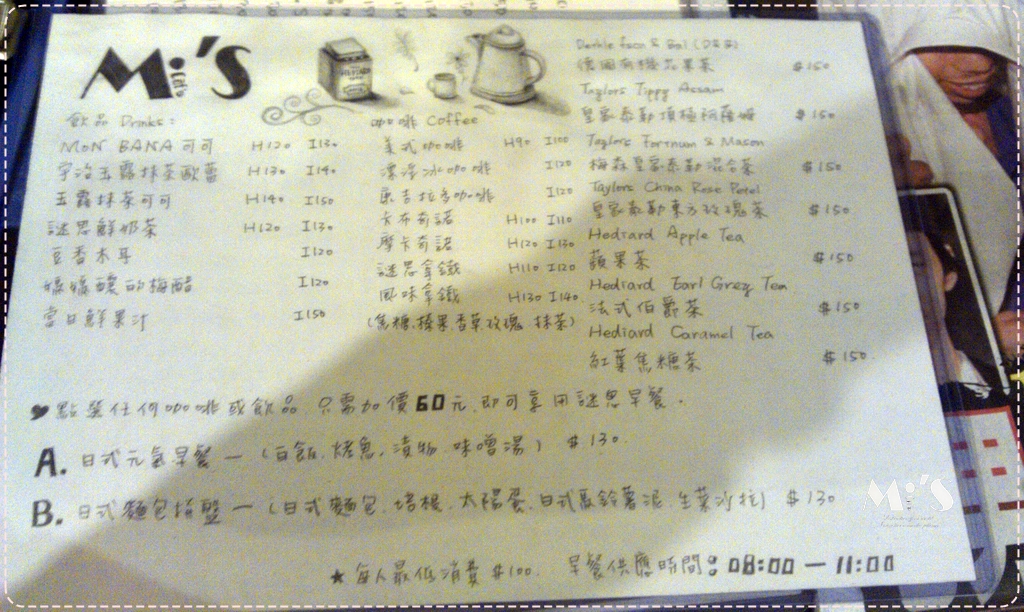 Mi'S
Café
飲品 Drinks:
MON BANA 可可 H120 I130
宇治玉露抹茶歐蕾 H130 I140
玉露抹茶可可 H140 I150
謎思鮮奶茶 H120 I130
豆香木耳 I120
媽媽釀的梅醋 I120
當日鮮果汁 I150
咖啡 Coffee
美式咖啡 H90 I100
漂浮冰咖啡 I120
馬吉拉多咖啡 I120
卡布奇諾 H100 I110
摩卡奇諾 H120 I130
謎思拿鐵 H110 I120
風味拿鐵 H130 I140
(焦糖.榛果.香草.玫瑰.抹茶)
德國有機蘋果茶 $150
Taylors Tippy Assam
皇家泰勒頂極阿薩姆 $150
Taylors Fortnum & Mason
梅森皇家泰勒混合茶 $150
Taylors China Rose Petel
皇家泰勒東方玫瑰茶 $150
Hediard Apple Tea
蘋果茶 $150
Hediard Earl Grey Tea
法式伯爵茶 $150
Hediard Caramel Tea
紅葉焦糖茶 $150
點選任何咖啡或飲品,只需加價60元,即可享用謎思早餐.
A. 日式元氣早餐 — (白飯.烤魚.漬物.味噌湯) $130
B. 日式麵包拼盤 — (日式麵包.培根.太陽蛋.日式馬鈴薯泥.生菜沙拉) $130
★每人最低消費 $100. 早餐供應時間:08:00 — 11:00
Mi'S